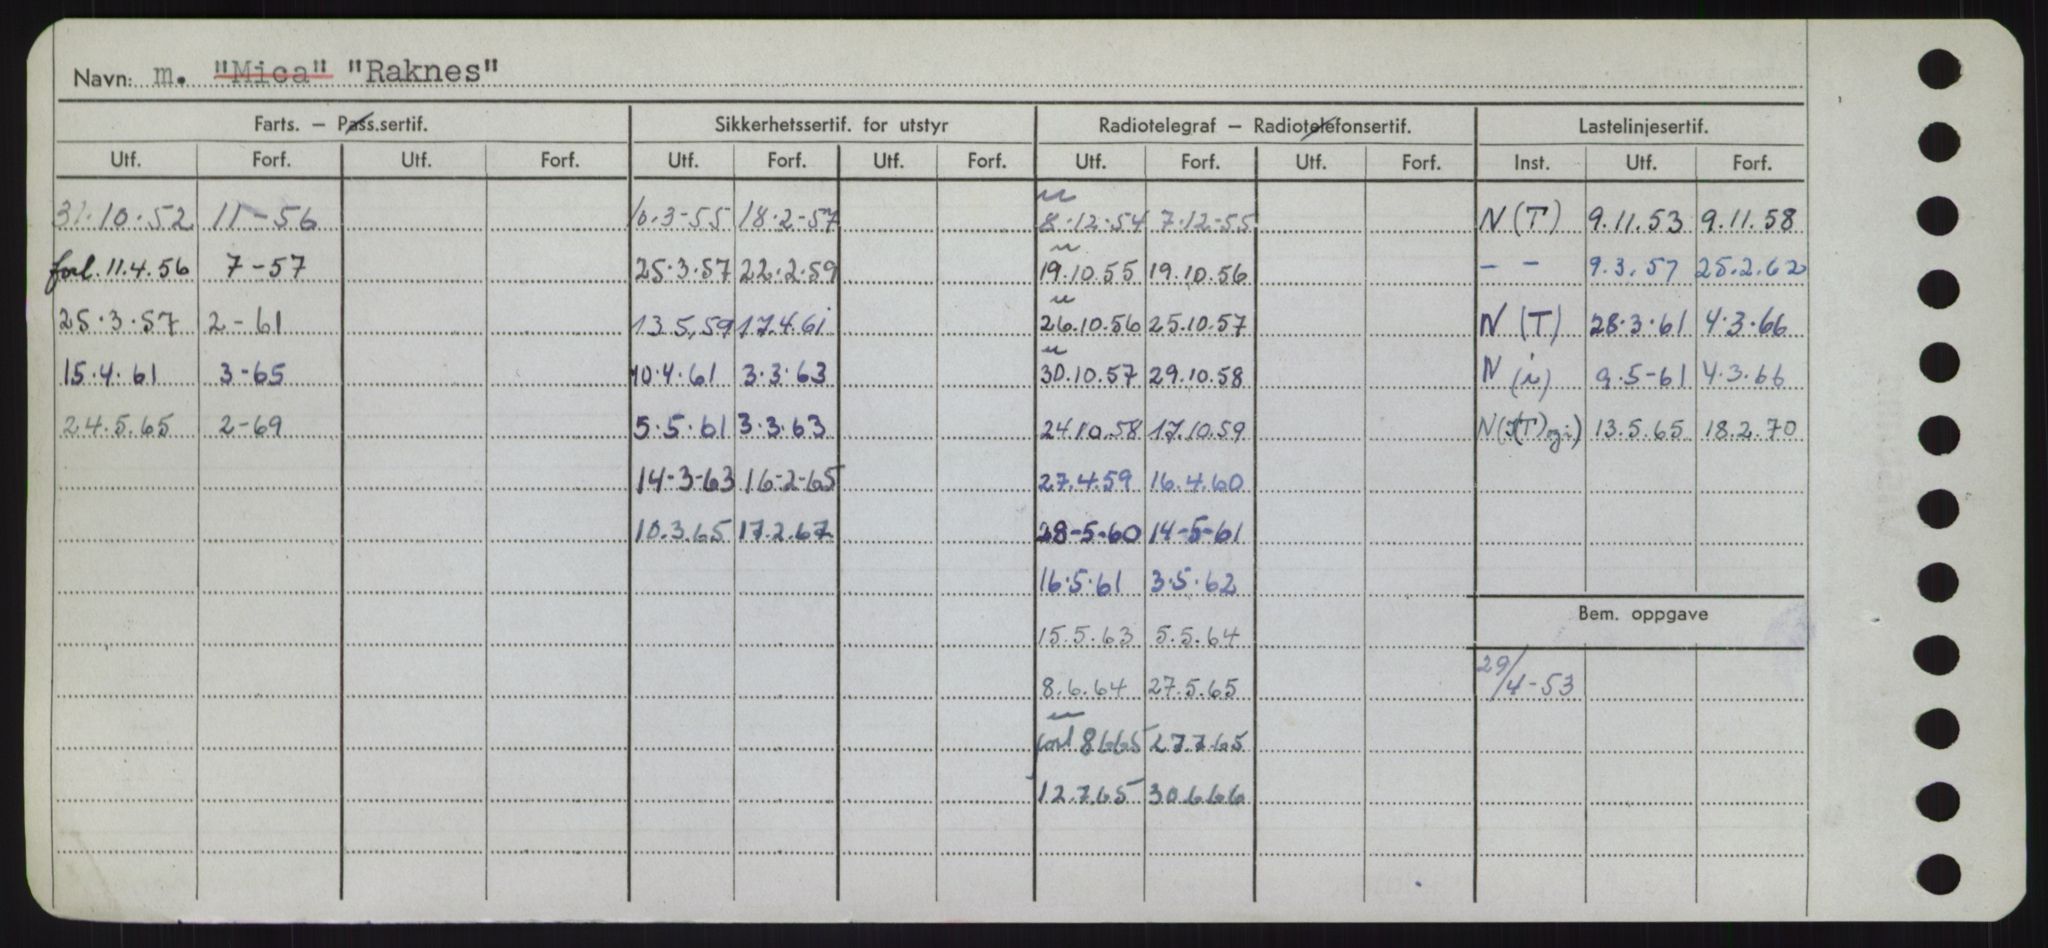 Navn: m. "Mica" "Raknes"
Farts. – Pass.sertif. Sikkerhetssertif. for utstyr Radiotelegraf – Radiotelefonsertif. Lastelinjesertif.
Utf. Forf. Utf. Forf. Utf. Forf. Utf. Forf. Utf. Forf. Utf. Forf. Inst. Utf. Forf.
31.10.52 11-56 10.3-55 18.2-57 8.12.54 7.12-55 N(T) 9.11.53 9.11.58
forl. 11.4.56 7-57 25.3.57 22.2.59 19.10.55 19.10.56 – – 9.3.57 25.2.62
25.3.57 2-61 13.5.59 17.4.61 26.10.56 25.10.57 N (T) 28.3.61 4.3.66
15.4.61 3-65 10.4.61 3.3.63 30.10.57 29.10.58 N (i) 9.5-61 4.3.66
24.5.65 2-69 5.5.61 3.3.63 24.10.58 17.10.59 13.5.65 18.2.70
14-3-63 16-2-65 27.4.59 16.4.60
10.3.65 17.2.67 28-5-60 14-5-61
16.5.61 3.5.62
Bem. oppgave
15.5.63 5.5.64
29/4-53
8.6.64 27.5.65
forl 8665 27.7.65
12.7.65 30.6.66